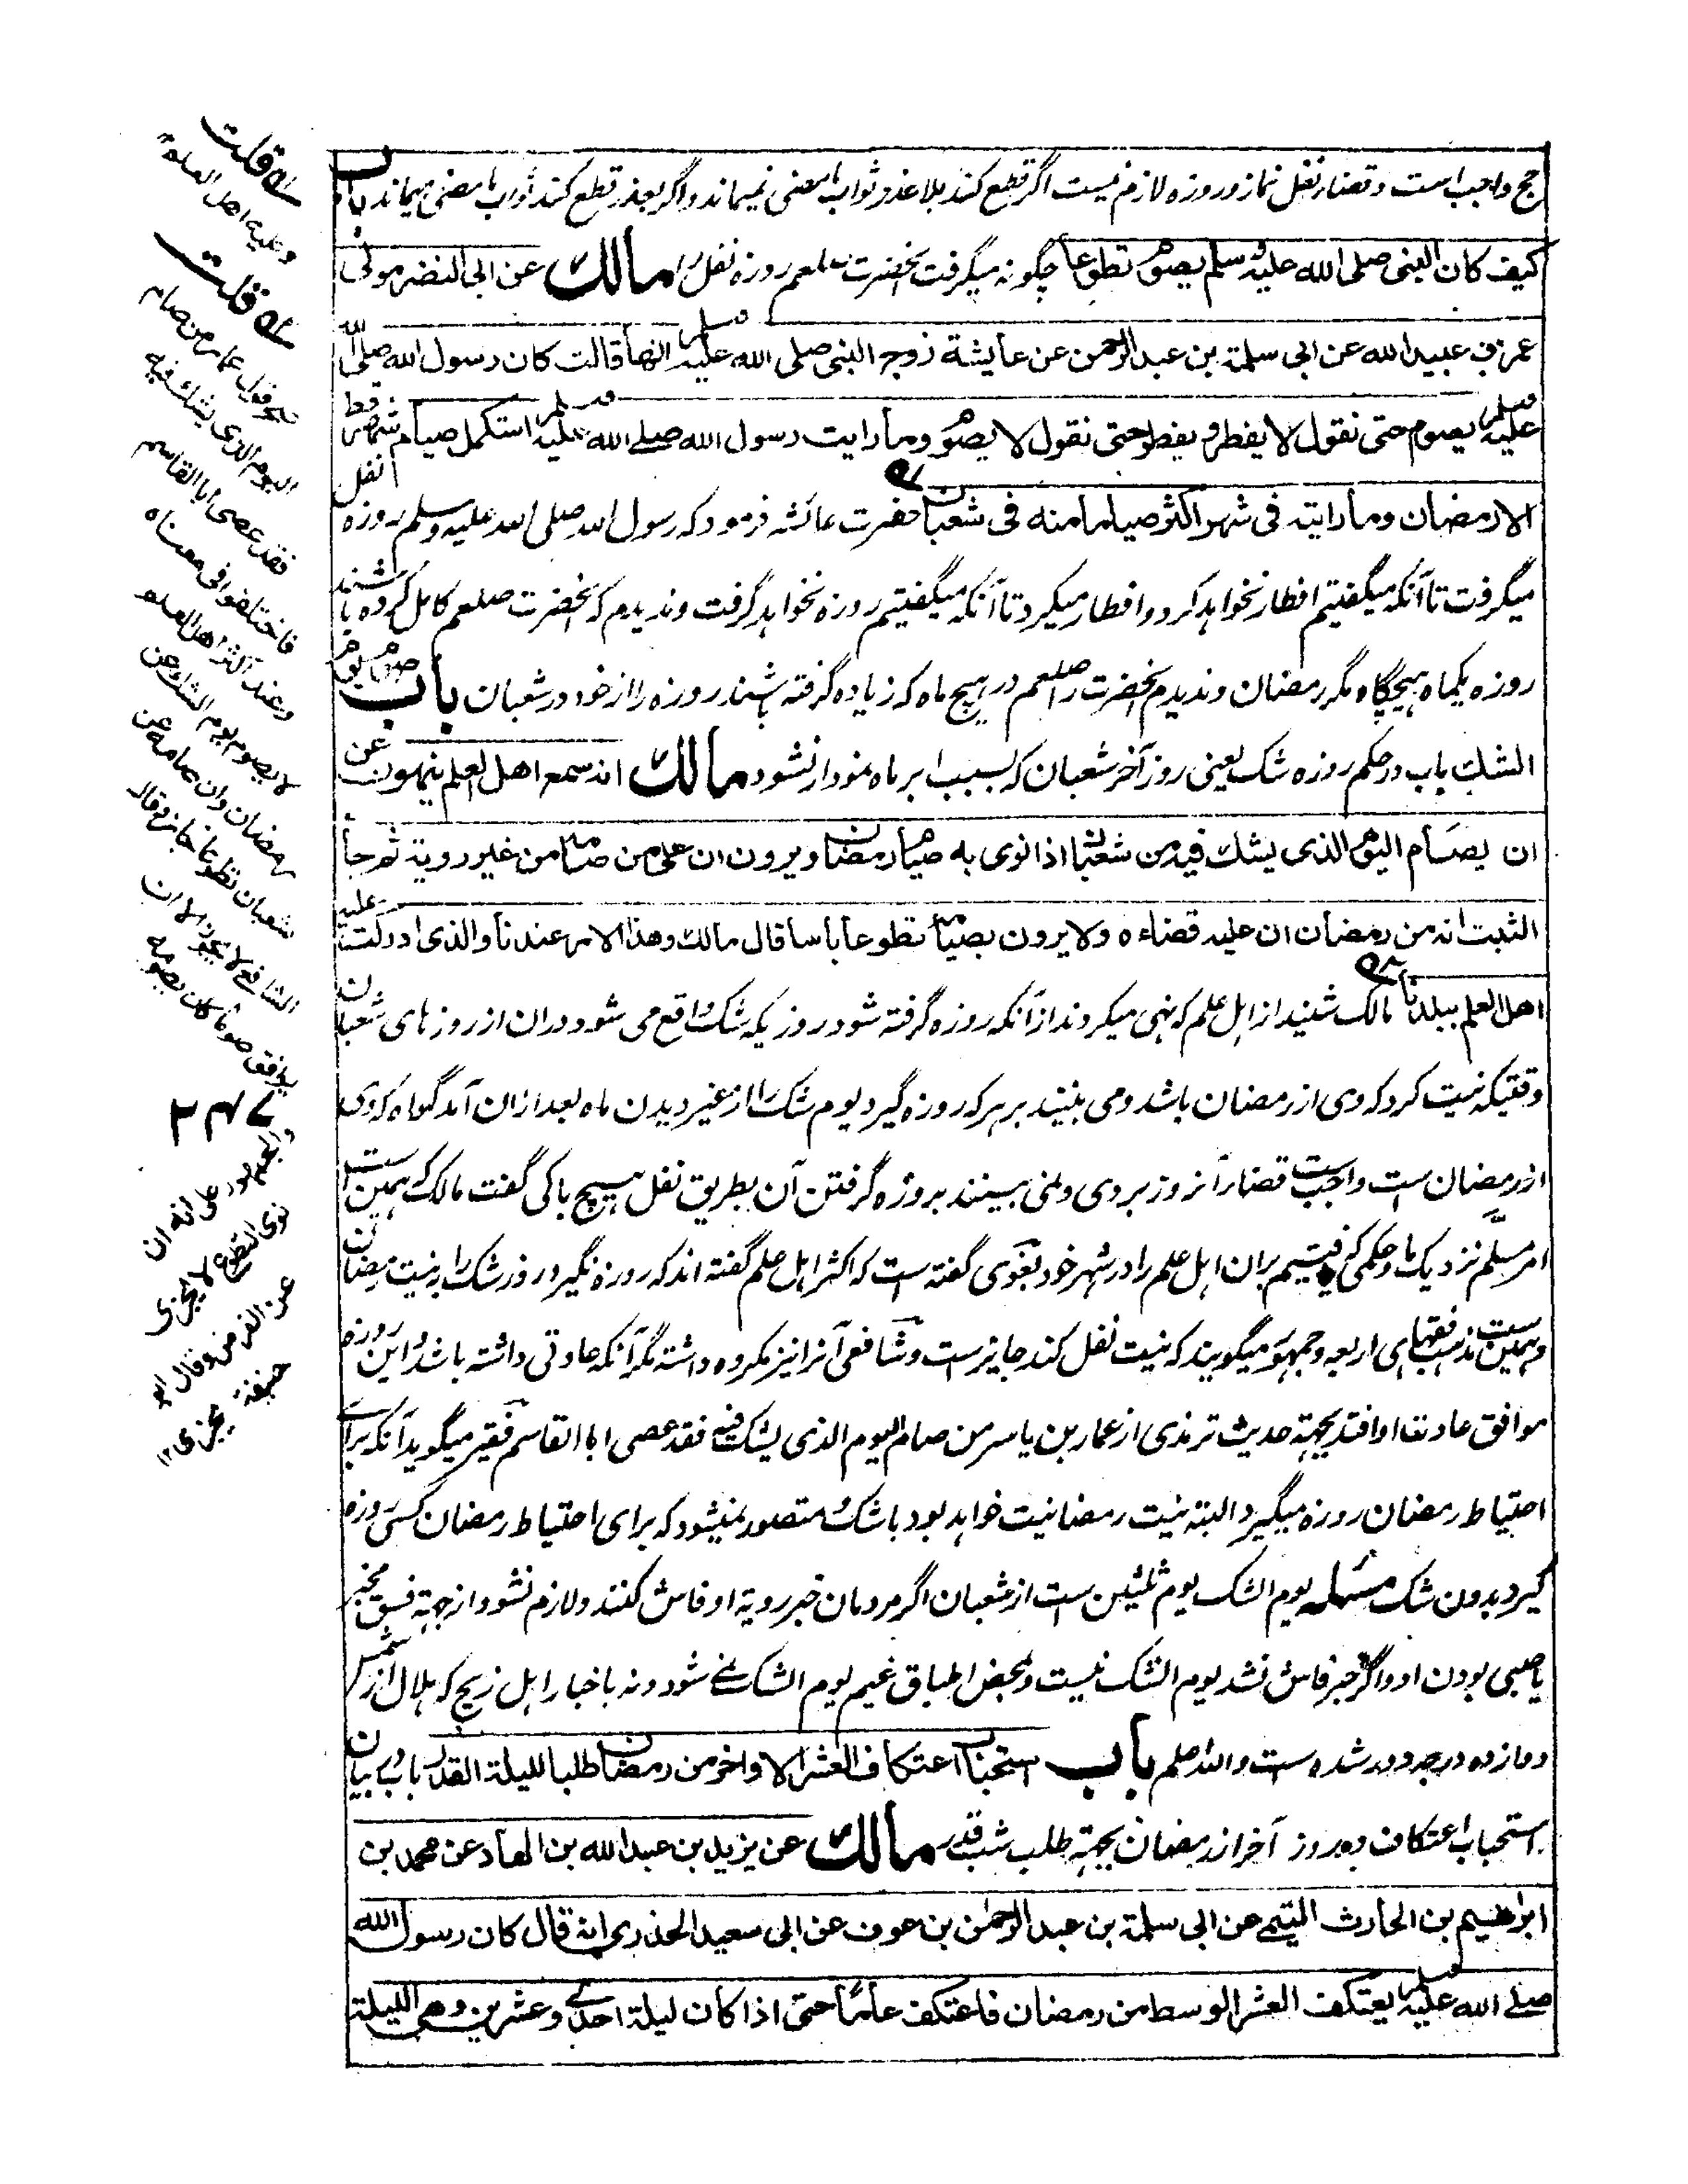 حج واجب است و قضاء نفل نماز و روزه لازم نیست اگر قطع کند بلا عذر ثواب ما مضی نمیماند و اگر بعذر قطع کند ثواب ما مضی میماند باب
کیف کان النبی صلی الله علیه وسلم یصوم تطوعا چگونه میگرفت آنحضرت صلعم روزه نفل را مالك عن ابی النضر مولی
عمر بن عبید الله عن ابی سلمة بن عبد الرحمن عن عایشة زوج النبی صلی الله علیه وسلم انها قالت کان رسول الله صلی الله
علیه وسلم یصوم حتی نقول لا یفطر و یفطر حتی نقول لا یصوم وما رایت رسول الله صلے الله علیه وسلم استکمل صیام شهر قط
الا رمضان وما رایته فی شهر اکثر صیاما منه فی شعبان حضرت عائشه فرمود که رسول الله صلی الله علیه وسلم روزه نفل
میگرفت تا آنکه میگفتیم افطار نخواهد کرد و افطار میکرد تا آنکه میگفتیم روزه نخواهد گرفت و ندیدم که آنحضرت صلعم کامل کرده باشند
روزه یکماه هیچگاه مگر رمضان و ندیدم آنحضرت را صلعم در هیچ ماه که زیاده گرفته باشند روزه را از خود در شعبان باب صوم یوم
الشك باب در حکم روزه شک یعنی روز آخر شعبان که بسبب ابر ماه نمودار نشود مالك انه سمع اهل العلم ینهون عن
ان یصام الیوم الذی یشك فیه من شعبان اذا نوی به صیام رمضان و یرون ان علی من صامه من غیر رویة ثم جاء
الثبت انه من رمضان ان علیه قضاءه ولا یرون بصیامه تطوعا باسا قال مالك وهذا الامر عندنا والذی ادرکت علیه
اهل العلم ببلدنا مالک شنید از اهل علم که نهی میکردند از آنکه روزه گرفته شود روزیکه شک واقع می شود در ان از روزهای شعبان
وقتیکه نیت کرد که وی از رمضان باشد و می بینند بر هر که روزه گیرد یوم شک را از غیر دیدن ماه بعد از ان آمد گواه که وی
از رمضان ست واجب است قضاء آنروز بر وی و نمی بینند بروزه گرفتن آن بطریق نفل هیچ باکی گفت مالک همین است
امر مسلّم نزدیک ما و حکمی که یافتیم بران اهل علم را در شهر خود بغوی گفته ست که اکثر اهل علم گفته اند که روزه نگیرد روز شک را به نیت رمضان
و همین ست مذهب فقهای اربعه و جمهور میگویند که نیت نفل کند جایز ست و شافعی آنرا نیز مکروه داشته مگر آنکه عادتی داشته باشد و این روزه
موافق عادت او افتد بجهة حدیث ترمذی از عمار بن یاسر من صام الیوم الذی یشک فیه فقد عصی ابا القاسم فقیر میگوید آنکه برای
احتیاط رمضان روزه میگیرد البته نیت رمضانیت خواهد بود با شک و متصور نمیشود که برای احتیاط رمضان کسی روزه
گیرد بدون شک مسئله یوم الشک یوم ثلثین ست از شعبان اگر مردمان خبر رویة او فاش کنند و لازم نشود از جهة فسق مخبر
یا صبی بودن او و اگر خبر فاش نشد یوم الشک نیست و بمحض اطباق غیم یوم الشک نمے شود و نه باخبار اهل زیج که هلال از شمس
دوازده درجه دور شده ست والله اعلم باب استحباب اعتکاف العشر الاواخر من رمضان طلبا للیلة القدر باب در بیان
استحباب اعتکاف ده روز آخر از رمضان بجهة طلب شب قدر مالك عن یزید بن عبد الله بن الهاد عن محمد بن
ابراهیم بن الحارث التیمے عن ابی سلمة بن عبد الرحمن بن عوف عن ابی سعید الخدری انه قال کان رسول الله
صلے الله علیه وسلم یعتکف العشر الوسط من رمضان فاعتکف عاما حتی اذا کان لیلة احدی وعشرین وهی اللیلة
سله قلت
وعلیه اهل العلم ۱۲
سله قلت
قول عمار من صام
الیوم الذی یشك فیه
فقد عصی ابا القاسم
فاختلفوا فی معناه
وعند اکثر اهل العلم
لا یصوم یوم الشك عن
رمضان وان صامه عن
شعبان تطوعا جاز وقال
الشافعی لا یجوز الا ان
یوافق صوما کان یصومه
والجمهور علی انه ان
نوی التطوع لا یجزی
عن الفرض وقال ابو
حنیفة یجزی ۱۲